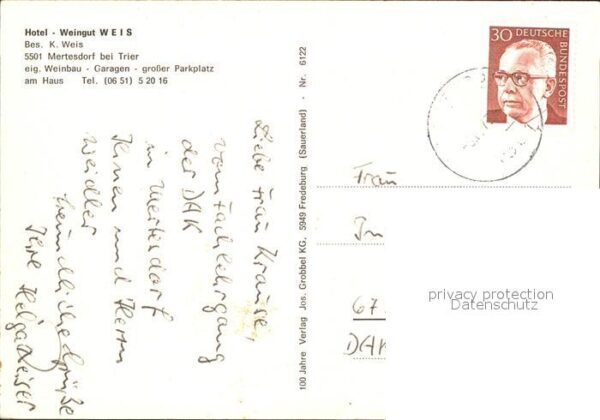 Hotel - Weingut WEIS
Bes. K. Weis
5501 Mertesdorf bei Trier
eig. Weinbau - Garagen - großer Parkplatz
am Haus Tel. (06 51) 5 20 16
Liebe Frau Krause,
vom Fachlehrgang
der DAK
in Mertesdorf
Ihnen und Herrn
Weidler
freundliche Grüße
Ihre Helga
100 Jahre Verlag Jos. Grobbel KG, 5949 Fredeburg (Sauerland) · Nr. 6122
30
DEUTSCHE
BUNDESPOST
Frau
67
DAK
privacy protection
Datenschutz